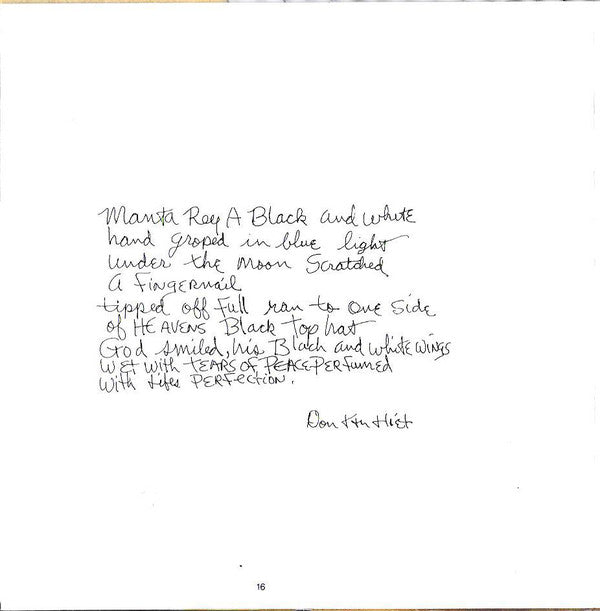 Manta Rey A Black and white
hand groped in blue light
under the moon Scratched
a fingernail
tipped off full ran to one side
of HEAVENS Black Top hat
God smiled, his Black and white wings
wet with TEARS OF PEACE PERfumed
with Lifes PERFECTION.
Don
16